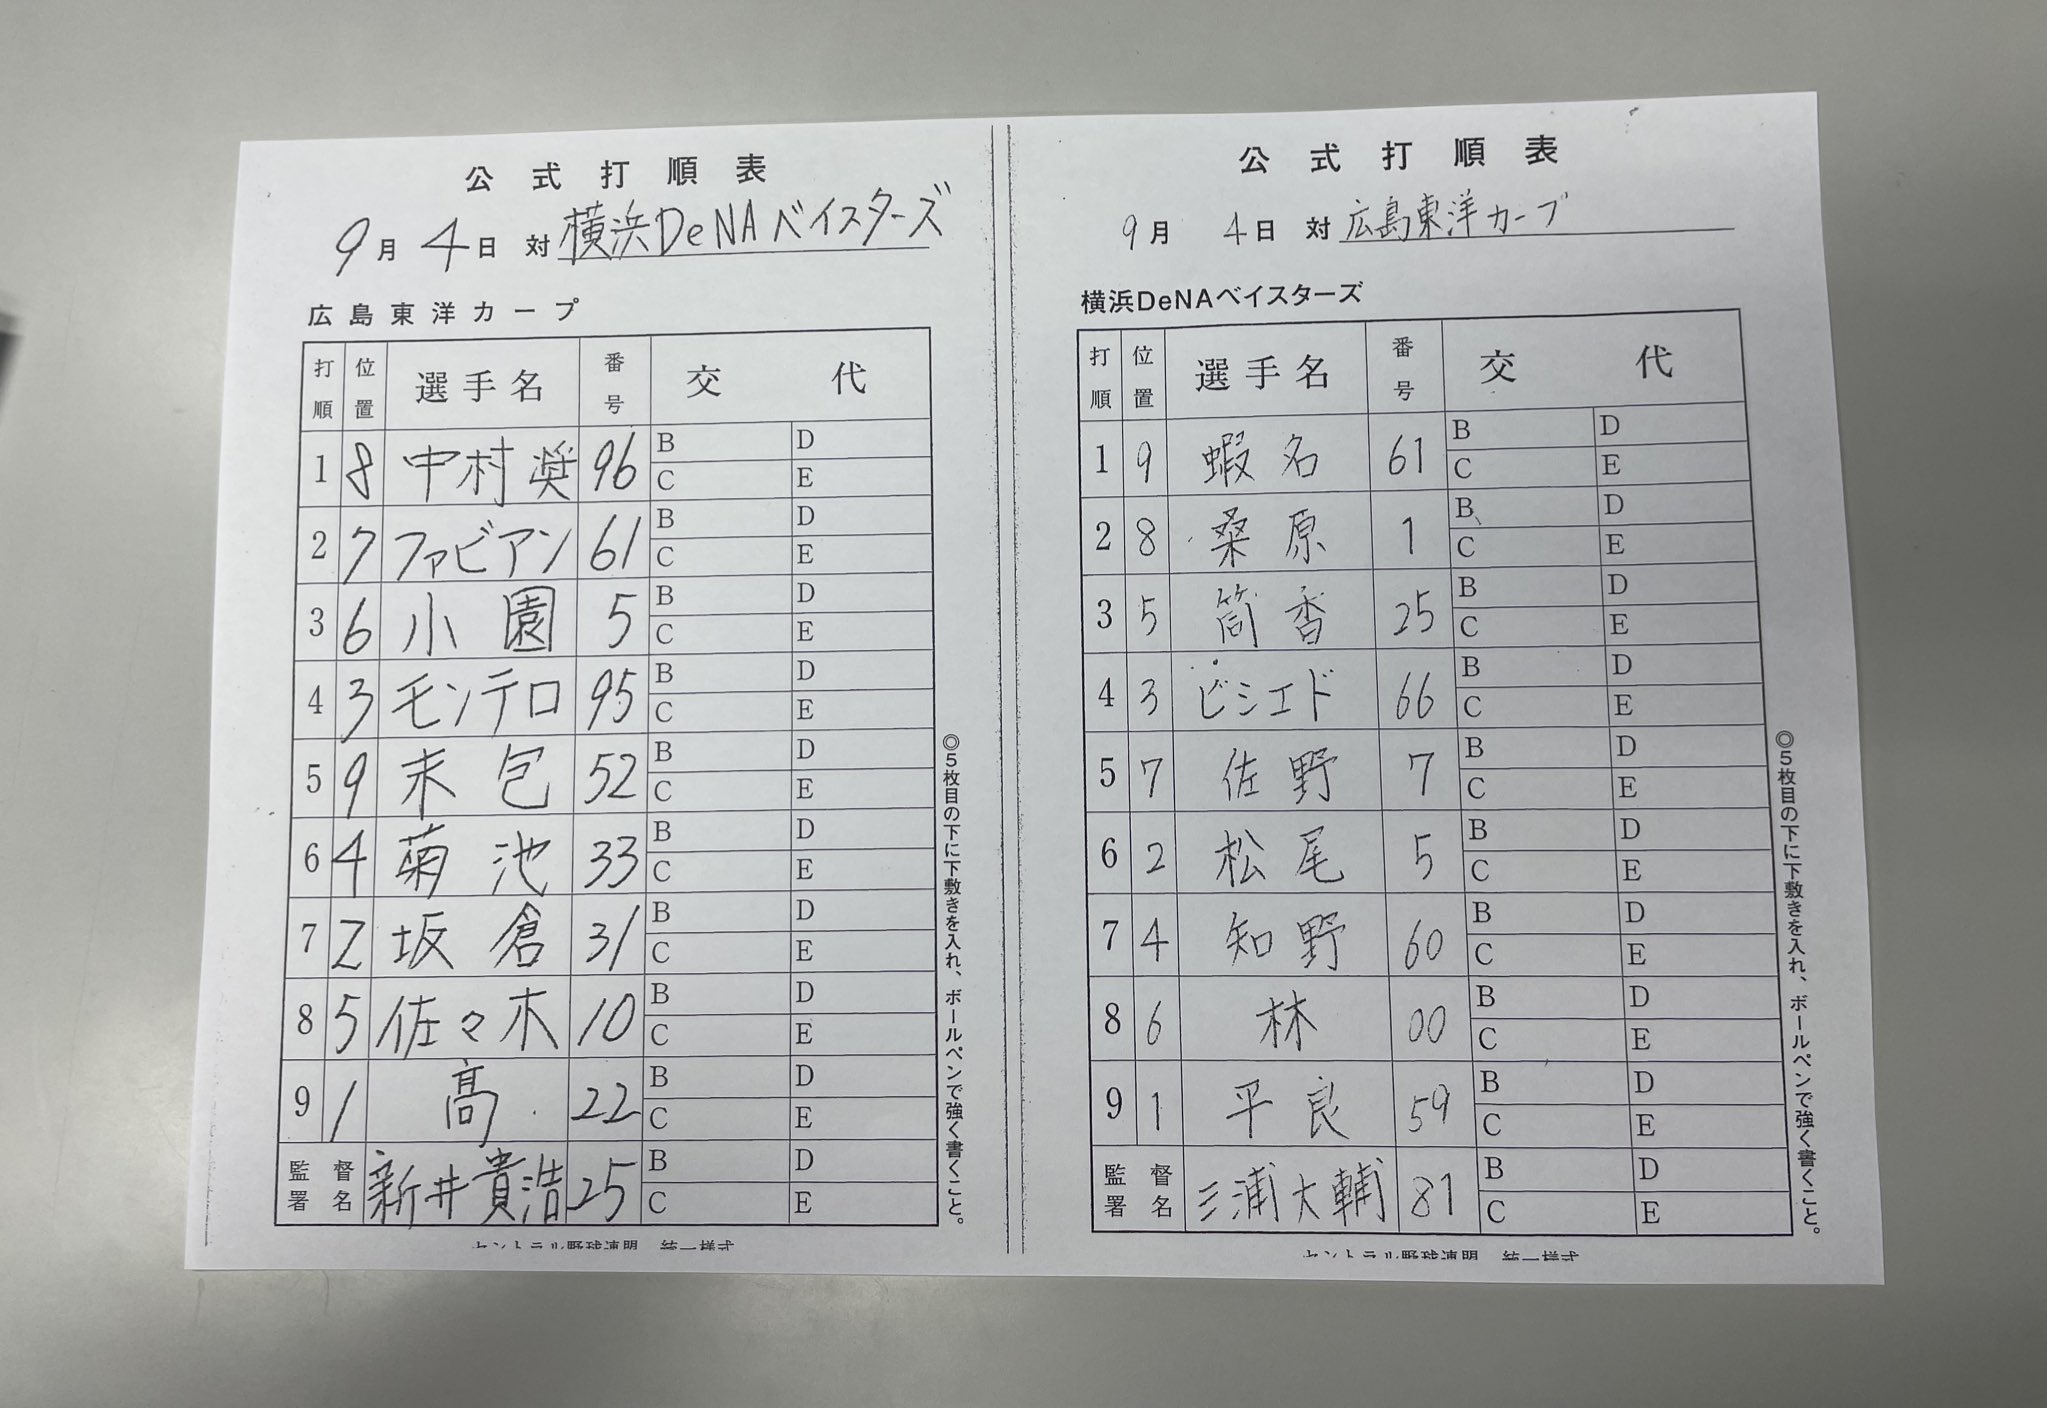 公式打順表
9月 4日 対 横浜DeNAベイスターズ
広島東洋カープ
打順 位置 選手名 番号 交代
1 8 中村奨 96 B D C E
2 7 ファビアン 61 B D C E
3 6 小園 5 B D C E
4 3 モンテロ 95 B D C E
5 9 末包 52 B D C E
6 4 菊池 33 B D C E
7 2 坂倉 31 B D C E
8 5 佐々木 10 B D C E
9 1 髙 22 B D C E
監督署名 新井貴浩 25 B D C E
◎5枚目の下に下敷きを入れ、ボールペンで強く書くこと。
セントラル野球連盟 統一様式
公式打順表
9月 4日 対 広島東洋カープ
横浜DeNAベイスターズ
打順 位置 選手名 番号 交代
1 9 蝦名 61 B D C E
2 8 桑原 1 B D C E
3 5 筒香 25 B D C E
4 3 ビシエド 66 B D C E
5 7 佐野 7 B D C E
6 2 松尾 5 B D C E
7 4 知野 60 B D C E
8 6 林 00 B D C E
9 1 平良 59 B D C E
監督署名 三浦大輔 81 B D C E
◎5枚目の下に下敷きを入れ、ボールペンで強く書くこと。
セントラル野球連盟 統一様式